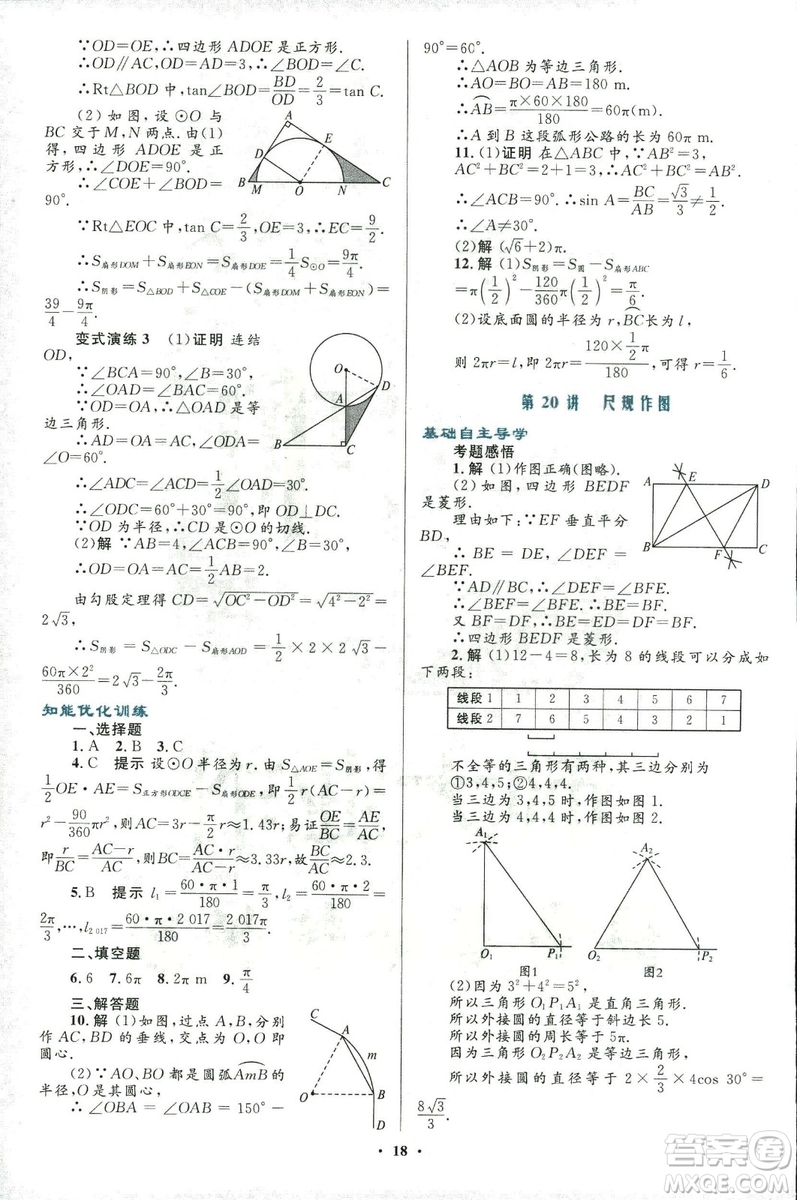 ∵OD=OE,∴四边形 ADOE 是正方形.
∴OD∥AC,OD=AD=3,∴∠BOD=∠C.
∴Rt△BOD 中,tan∠BOD=BD/OD=2/3=tan C.
(2)如图,设⊙O 与
BC 交于 M,N 两点.由(1)
得,四边形 ADOE 是正
方形,∴∠DOE=90°.
∴∠COE+∠BOD=
90°.
A
D
E
B
M
O
N
C
∵Rt△EOC 中,tan C=2/3,OE=3,∴EC=9/2.
∴S扇形DOM+S扇形EON=S扇形DOE=1/4S⊙O=9π/4.
∴S阴影=S△BOD+S△COE-(S扇形DOM+S扇形EON)=
39/4-9π/4.
变式演练 3 (1)证明 连结
OD,
∵∠BCA=90°,∠B=30°,
∴∠OAD=∠BAC=60°.
∵OD=OA,∴△OAD 是等
边三角形.
∴AD=OA=AC,∠ODA=∠O
=60°.
∴∠ADC=∠ACD=1/2∠OAD
=30°.
∴∠ODC=60°+30°=90°,即 OD⊥DC.
∵OD 为半径,∴CD 是⊙O 的切线.
O
D
A
B
C
(2)解 ∵AB=4,∠ACB=90°,∠B=30°,
∴OD=OA=AC=1/2AB=2.
由勾股定理得 CD=√(OC²-OD²)=√(4²-2²)=
2√3,
∴S阴影=S△ODC-S扇形AOD=1/2×2×2√3-
60π×2²/360=2√3-2π/3.
知能优化训练
一、选择题
1.A 2.B 3.C
4.C 提示 设⊙O 半径为 r.由 S△AOE=S阴影,得
1/2OE·AE=S正方形ODCE-S扇形ODE,即1/2r(AC-r)=
r²-90/360πr²,所以 AC=3r-πr/2≈1.43r;易证OE/BC=AE/AC,
即r/BC=AC-r/AC,所以 BC=AC·r/AC-r≈3.33r.故BC/AC≈2.3.
5.B 提示 l₁=60·π·1/180=π/3,l₂=60·π·2/180=
2π/3,…,l₂₀₁₇=60·π·2 017/180=2 017π/3.
二、填空题
6.6 7.6π 8.2π m 9.π/4
三、解答题
10.解 (1)如图,过点 A,B,分别
作 AC,BD 的垂线,交点为 O,O 即
为圆心.
(2)∵AO,BO 都是圆弧AmB的
半径,O 是其所在圆的圆心,
∴∠OBA=∠OAB=150°-
C
A
m
O
B
D
90°=60°.
∴△AOB 为等边三角形.
∴AO=BO=AB=180 m.
∴AB=π×60×180/180=60π(m).
∴A 到 B 这段弧形公路的长为 60π m.
11.(1)证明 在△ABC 中,∵AB²=3,
AC²+BC²=2+1=3,∴AC²+BC²=AB².
∴∠ACB=90°.∴sin A=BC/AB=√3/3≠1/2.
∴∠A≠30°.
(2)解 (√6+2)π.
12.解 (1)S阴影=S圆-S扇形ABC
=π(1/2)²-120/360π(1/2)²=π/6.
(2)设底面圆的半径为 r,BC长为 l,
则 2πr=l,即 2πr=120×π1/2/180,可得 r=1/6.
第 20 讲 尺规作图
基础自主导学
考题感悟
1.解 (1)作图正确(图略).
(2)如图,四边形 BEDF
是菱形.
理由如下:∵EF 垂直平分
BD,
∴BE=DE,∠DEF=
∠BEF.
∵AD∥BC,∴∠DEF=∠BFE.
∴∠BEF=∠BFE.∴BE=BF.
又 BF=DF,∴BE=ED=DF=BF.
∴四边形 BEDF 是菱形.
A
E
D
B
F
C
2.解 (1)12-4=8,长为 8 的线段可以分成如
下两段:
线段 1 1 2 3 4 5 6 7
线段 2 7 6 5 4 3 2 1
不全等的三角形有两种,其三边分别为
①3,4,5;②4,4,4.
当三边为 3,4,5 时,作图如图 1.
当三边为 4,4,4 时,作图如图 2.
A₁
O₁
P₁
图1
A₂
O₂
P₂
图2
(2)因为 3²+4²=5²,
所以三角形 O₁P₁A₁ 是直角三角形.
所以外接圆的直径等于斜边长 5.
所以外接圆的周长等于 5π.
因为三角形 O₂P₂A₂ 是等边三角形,
所以外接圆的直径等于 2×2/3×4cos 30°=
8√3/3.
· 18 ·
答案圈
MXQE.COM